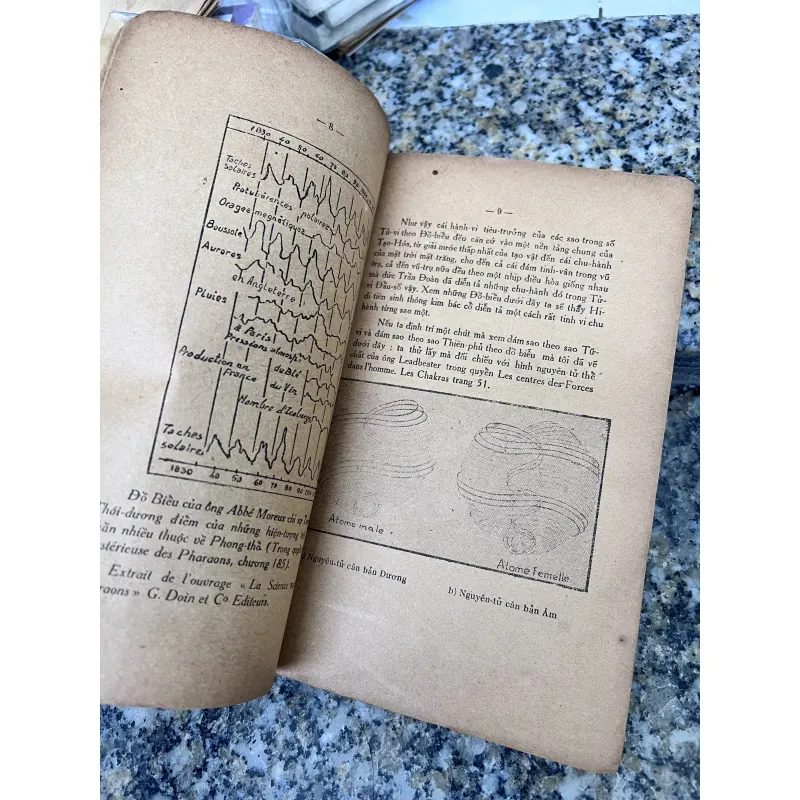 — 8 —
1830 40 50 60 70 80 90
Taches
solaires
Protubérences polaires
Orages megnétiques
Boussole
Aurores
en Angleterre
Pluies
à Paris
Pressions atmosph
du Blé
Production en
France
du Vin
Nombre d'Icebergs
Taches
solaires
1830 40 50 60 70 80 90
Đồ Biểu của ông Abbé Moreux chỉ sự
Thái-dương điểm của những hiện-tượng
nhiều thuộc về Phong-thổ. (Trong
stérieuse des Pharaons, chương 185).
Extrait de l'ouvrage « La Science
araons » G. Doin et Cº Editeurs.
— 9 —
Như vậy cái hành-vi tiêu-trưởng của các sao trong số
Tử-vi theo Đồ-biểu đều căn cứ vào một nền tảng chung của
Tạo-Hóa, từ giải nước thấp nhất của tạo-vật đến cái chu-hành
của mặt trời mặt trăng, cho đến cả cái đám tinh-vân trong vũ
trụ, cả đến vũ-trụ nữa đều theo một nhịp điệu hòa giống nhau
mà đức Trần Đoàn đã diễn tả những chu-hành đó trong Tử-
vi Đầu-số vậy. Xem những Đồ-biểu dưới đây ta sẽ thấy Hi-
di tiên sinh thông kim bác cổ diễn tả một cách rất tinh vi chu
hành từng sao một.
Nếu ta định trí một chút mà xem đám sao theo sao Tử-
vi và đám sao theo sao Thiên-phủ theo đồ biểu mà tôi đã vẽ
dưới đây : ta thử lấy mà đối chiếu với hình nguyên tử thể
chất của ông Leadbeater trong quyển Les centres des Forces
dans l'homme. Les Chakras trang 51.
Atome male
Atome Femelle
Nguyên-tử căn bản Dương
b) Nguyên-tử căn bản Âm